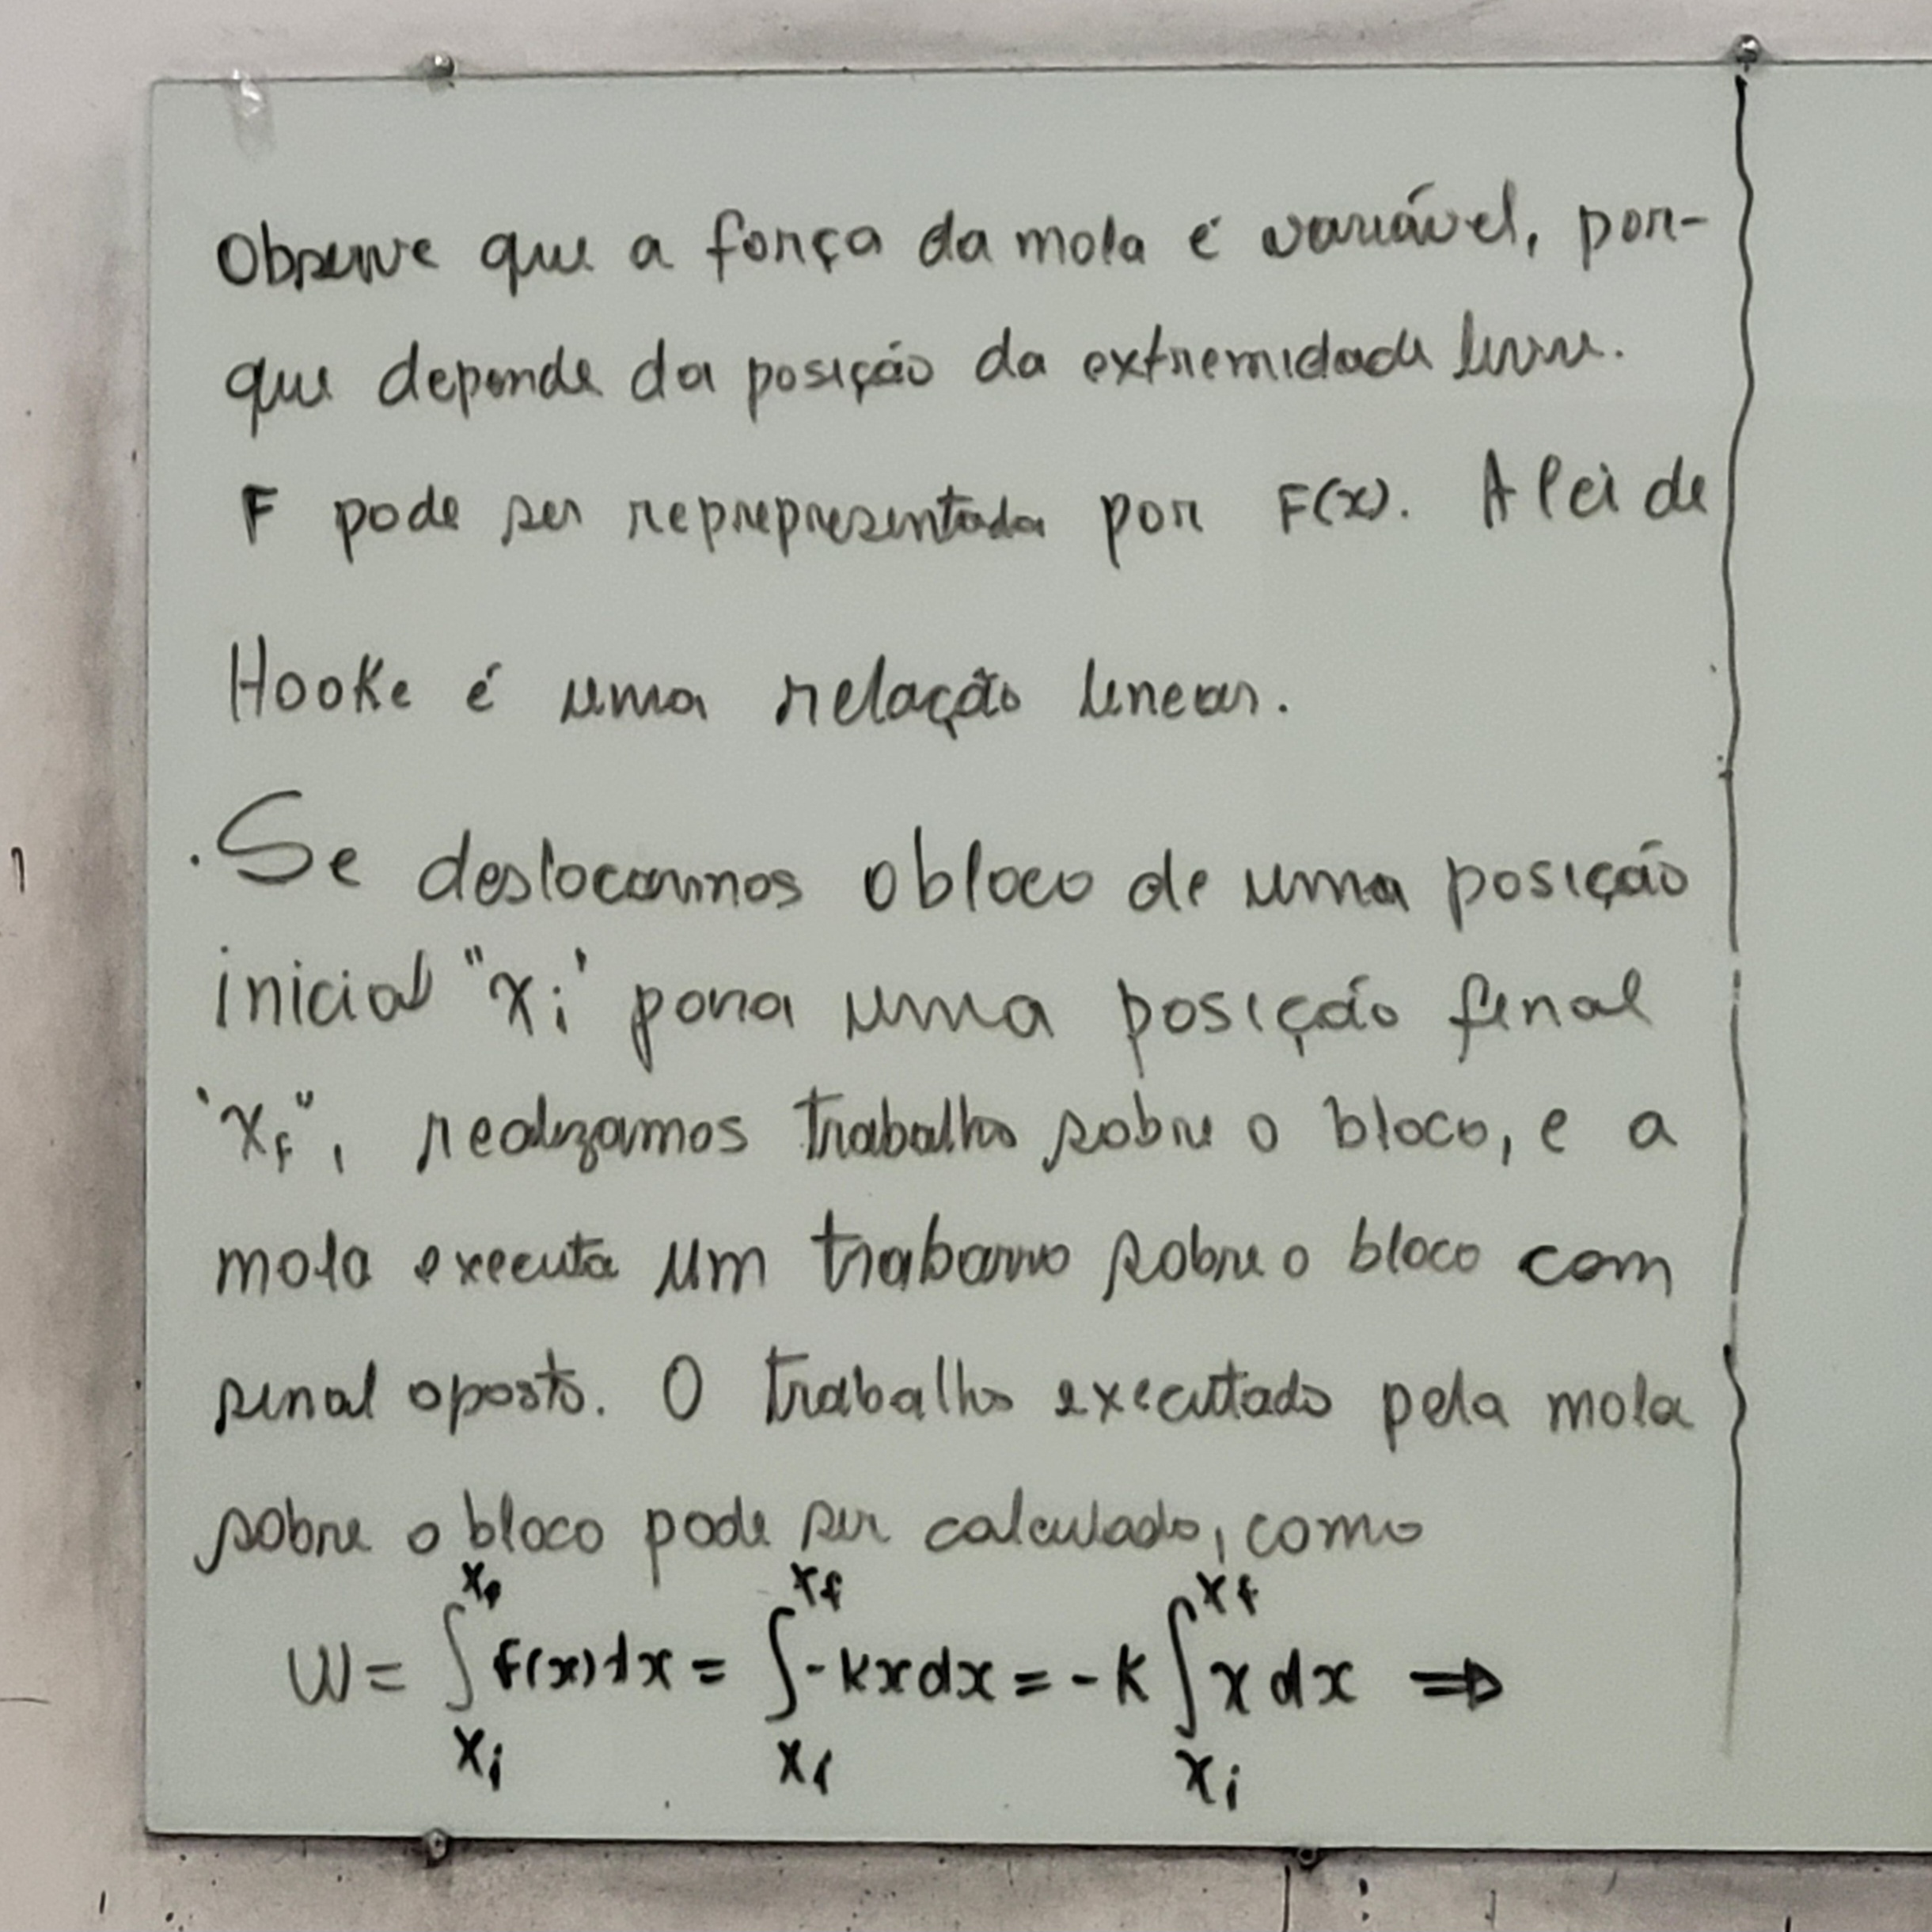 Observe que a força da mola é variável, por-
que depende da posição da extremidade livre.
F pode ser reprepresentada por F(x). A lei de
Hooke é uma relação linear.
. Se deslocarmos o bloco de uma posição
inicial "xi' para uma posição final
'xf", realizamos trabalho sobre o bloco, e a
mola executa um trabalho sobre o bloco com
sinal oposto. O trabalho executado pela mola
sobre o bloco pode ser calculado, como
W = ∫_{xi}^{xf} F(x) dx = ∫_{xi}^{xf} -kx dx = -k ∫_{xi}^{xf} x dx ⇒